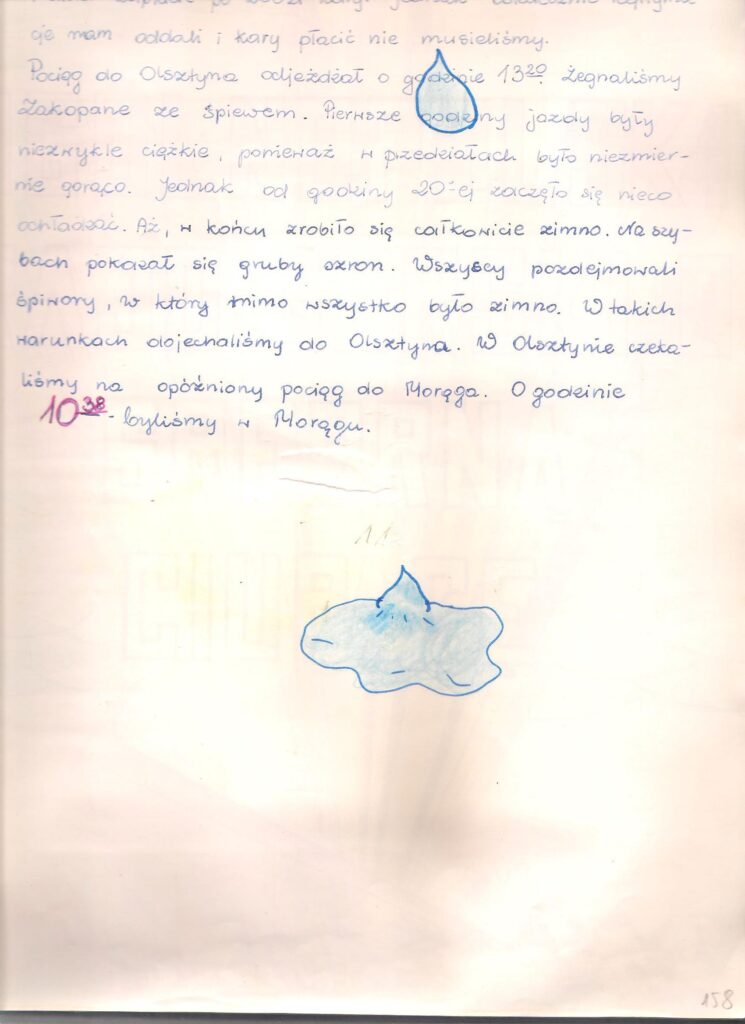 cje nam oddali i kary płacić nie musieliśmy.
Pociąg do Olsztyna odjeżdżał o godzinie 13²⁰. Żegnaliśmy
Zakopane ze śpiewem. Pierwsze godziny jazdy były
niezwykle ciężkie, ponieważ w przedziałach było niezmier-
nie gorąco. Jednak od godziny 20-ej zaczęło się nieco
ochładzać. Aż, w końcu zrobiło się całkowicie zimno. Na szy-
bach pokazał się gruby szron. Wszyscy pozdejmowali
śpiwory, w który mimo wszystko było zimno. W takich
warunkach dojechaliśmy do Olsztyna. W Olsztynie czeka-
liśmy na opóźniony pociąg do Morąga. O godzinie
10³⁸- byliśmy w Morągu.
158